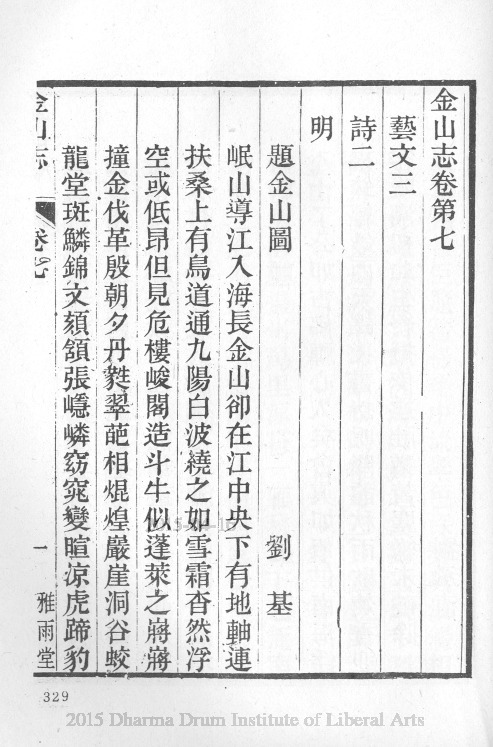 金山志卷第七
藝文三
詩二
明
題金山圖 劉基
岷山導江入海長金山卻在江中央下有地軸連
扶桑上有鳥道通九陽白波繞之如雪霜杳然浮
空或低昂但見危樓峻閣造斗牛似蓬萊之嶈嶈
撞金伐革殷朝夕丹甤翠葩相焜煌嚴崖洞谷蛟
龍堂斑鱗錦文頦頷張嶾嶙窈窕變暄涼虎蹄豹
金山志 卷七 一 雅雨堂
329
2015 Dharma Drum Institute of Liberal Arts